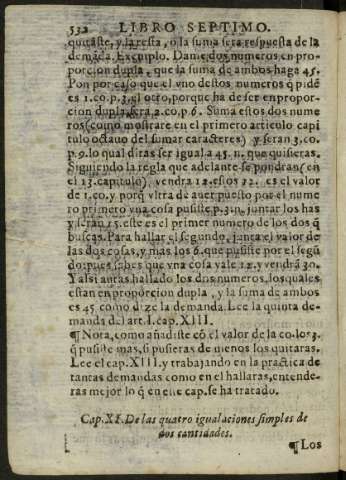 532 LIBRO SEPTIMO.
quitaste, y la resta, o la suma sera respuesta de la
demãda. Exemplo. Dame dos numeros en pro-
porcion dupla, que la suma de ambos haga 45.
Pon por caso que el vno destos numeros q̃ pidẽ
es 1.co.p.3. el otro, porque ha de ser en propor-
cion dupla, sera 2.co.p.6. Suma estos dos nume
ros (como mostrare en el primero articulo capi
tulo octauo del sumar caracteres) y seran 3.co.
p.9. lo qual diras ser igual a 45. n. que quisieras.
Siguiendo la regla que adelante se pondran (en
el 13. capitulo), vendra 12. estos 12. es el valor
de 1.co, y porq̃ vltra de auer puesto por el nume
ro primero vna cosa pusiste p.3.n. juntar los has
y seran 15. este es el primer numero de los dos q̃
buscas. Para hallar el segundo, junta el valor de
las dos cosas, y mas los 6. que pusiste por el segũ
do: pues sabes que vna cosa vale 12. y vendrã 30.
Y assi auras hallado los dos numeros, los quales
estan en proporcion dupla, y la suma de ambos
es 45. como dize la demanda. Lee la quinta de-
manda del art. 1. cap. XIII.
¶ Nota, como añadiste cõ el valor de la co. los 3.
q̃ pusiste mas, si pusieras de menos los quitaras.
Lee el cap. XIII. y trabajando en la practica de
tantas demandas como en el hallaras, entende-
ras mejor lo q̃ en este cap. se ha tratado.
Cap. XI. De las quatro igualaciones simples de
dos cantidades.
¶ Los